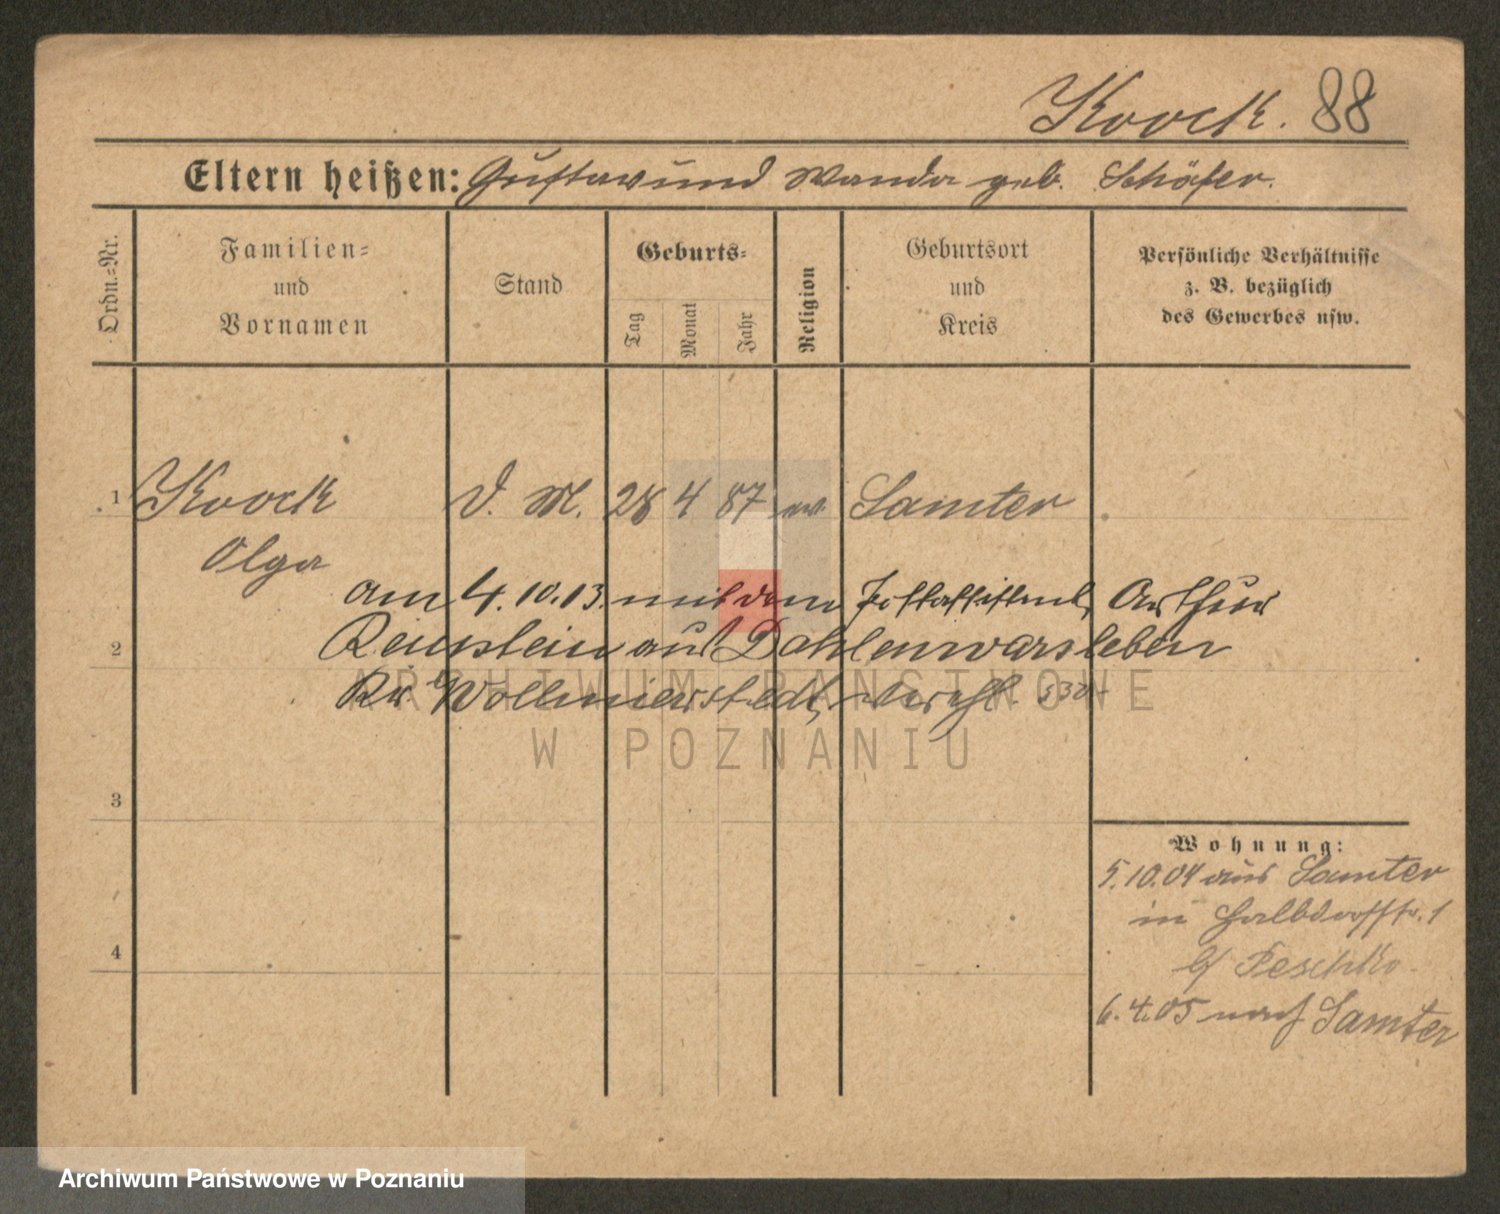 Koock. 88
Eltern heißen: Gustav und Wanda geb. Schäfer.
Ordn.=Nr.
Familien=
und
Vornamen
Stand
Geburts=
Tag
Monat
Jahr
Religion
Geburtsort
und
Kreis
Persönliche Verhältnisse
z. B. bezüglich
des Gewerbes usw.
1 Koock D. M. 28 4 87 ev Samter
Olga
am 4.10.13. mit dem Postassistent Arthur
2 aus Dahlenwarsleben
Kr. Wollmirstedt, verehl.
ARCHIWUM PAŃSTWOWE
W POZNANIU
3
4
Wohnung:
5.10.04 aus Samter
in Halbdorfstr. 1
b/ Peschke
6.4.05 nach Samter
Archiwum Państwowe w Poznaniu